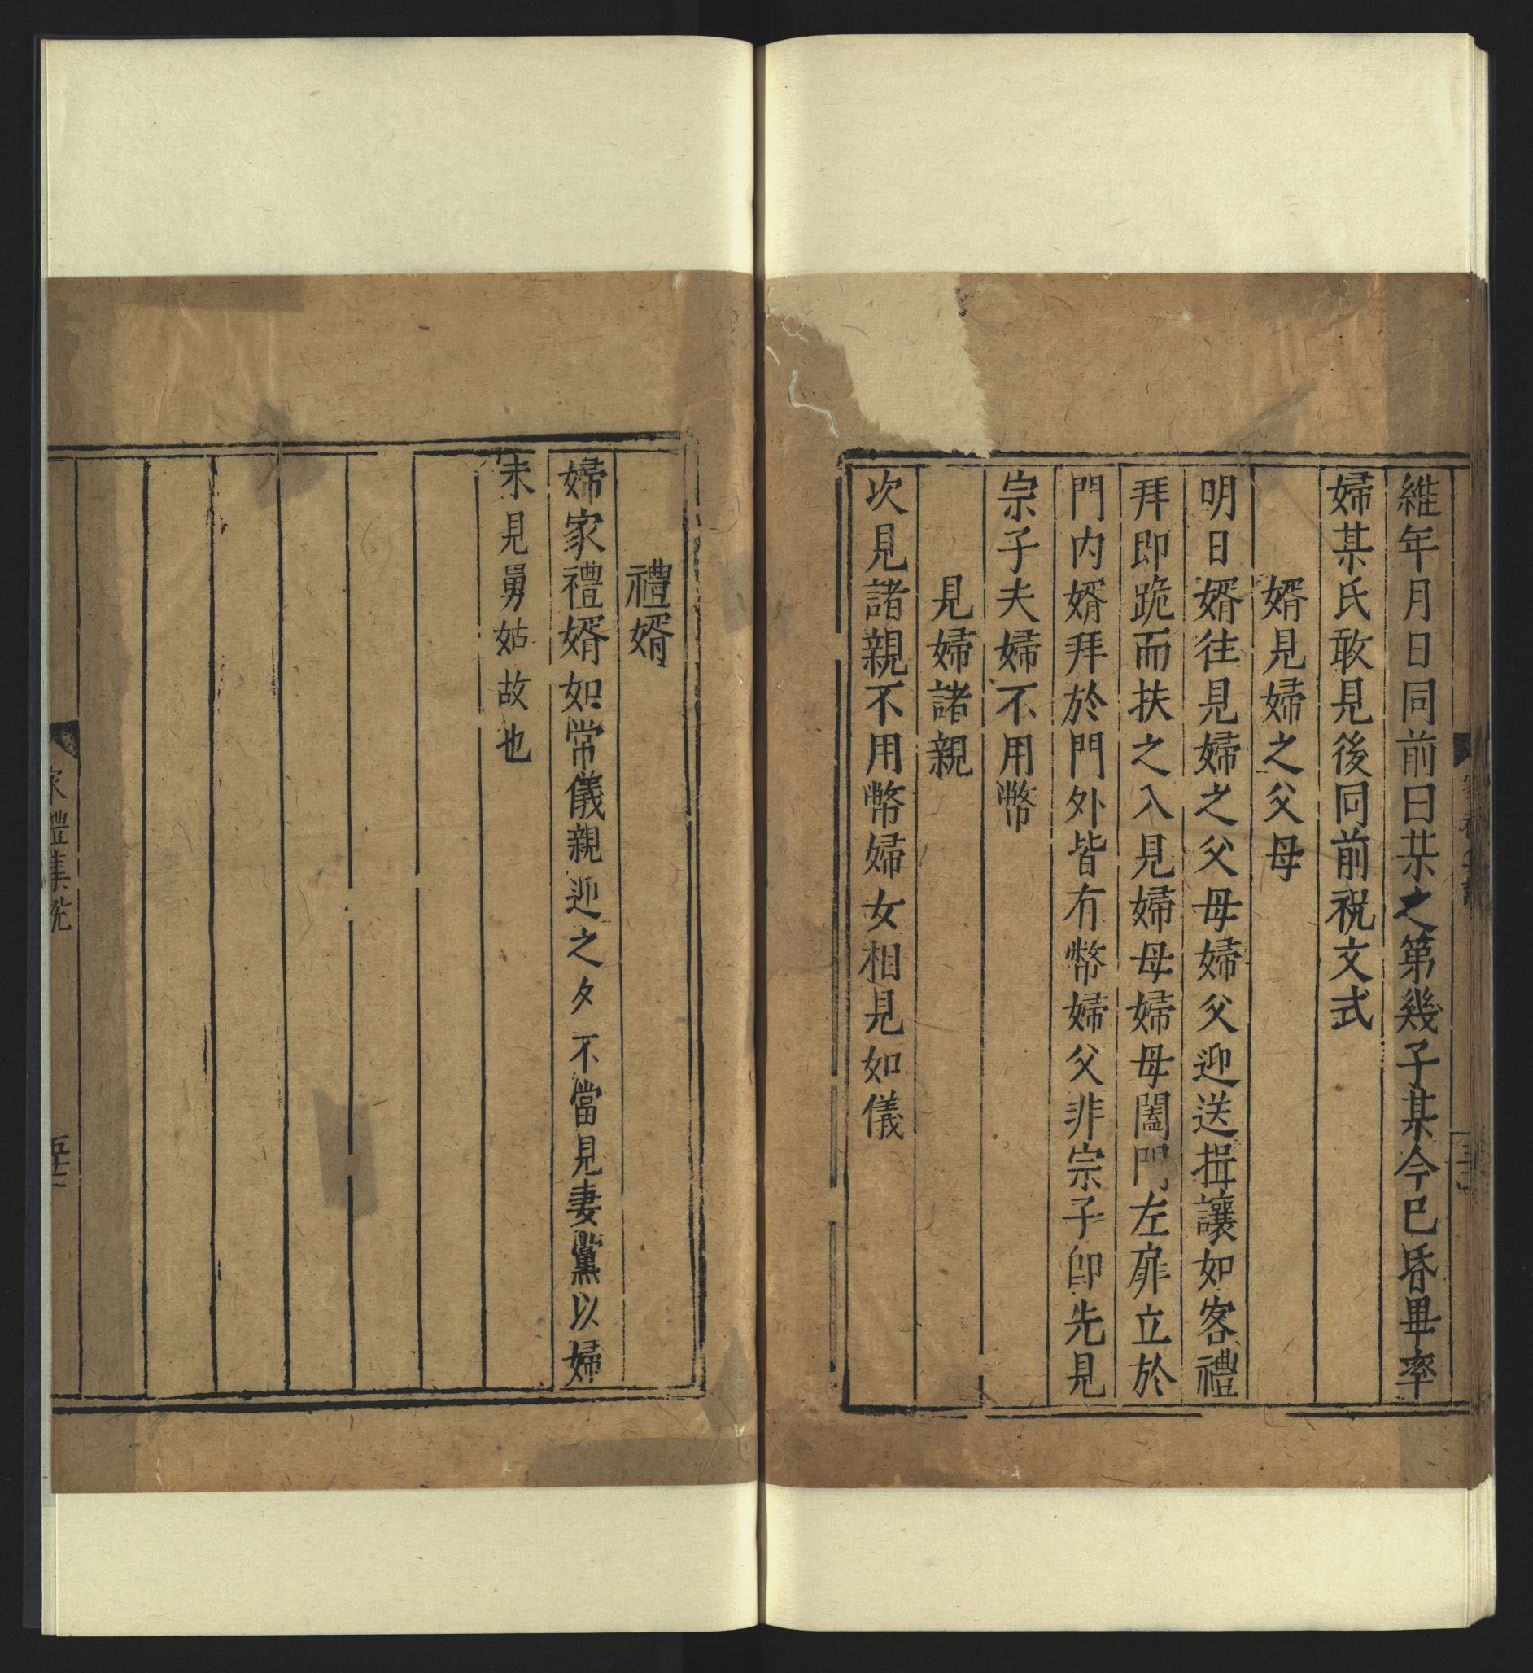 維年月日同前曰某之第幾子某今已昏畢率
婦某氏敢見後同前祝文式
婿見婦之父母
明日婿往見婦之父母婦父迎送揖讓如客禮
拜即跪而扶之入見婦母婦母闔門左扉立於
門内婿拜於門外皆有幣婦父非宗子即先見
宗子夫婦不用幣
見婦諸親
次見諸親不用幣婦女相見如儀
禮婿
婦家禮婿如常儀親迎之夕不當見妻黨以婦
未見舅姑故也
家禮集説